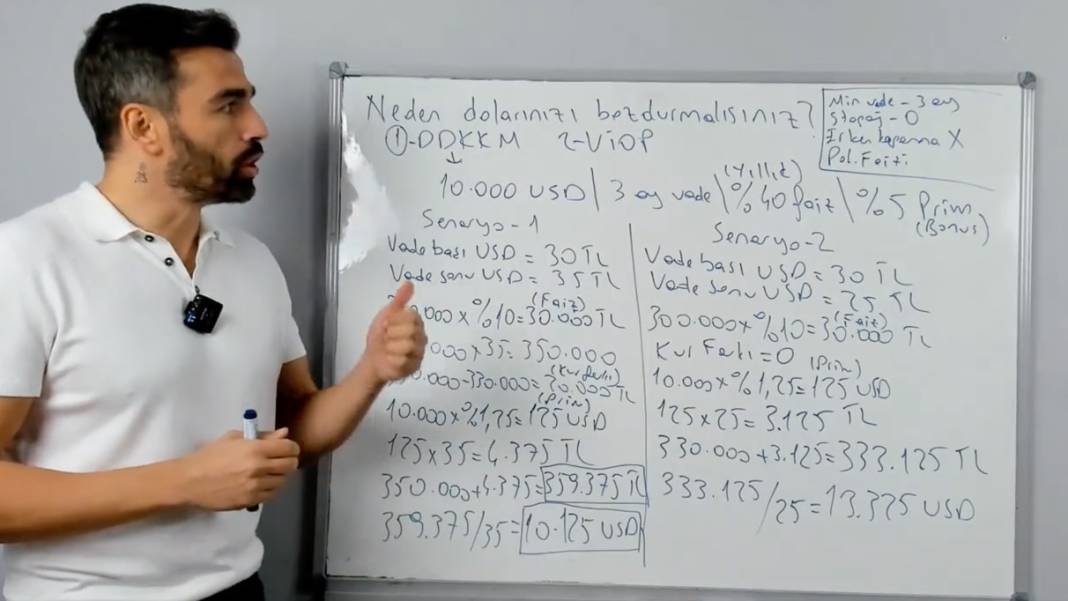 Neden dolarınızı bozdurmalısınız?
①-DDKKM 2-VİOP
Min vade - 3 ay
Stopaj - 0
Erken kapama X
Pol. Faizi
(Yıllık)
10.000 USD | 3 ay vade | %40 faiz | %5 Prim
(Bonus)
Senaryo-1
Vade başı USD = 30 TL
Vade sonu USD = 35 TL
(Faiz)
.000 x %10 = 30.000 TL
000 x 35 = 350.000
(Kur farkı)
.000-330.000 = 20.000 TL
(Prim)
10.000 x %1,25 = 125 USD
125 x 35 = 4.375 TL
350.000 + 4.375 = 359.375 TL
359.375/35 = 10.125 USD
Senaryo-2
Vade başı USD = 30 TL
Vade sonu USD = 25 TL
(Faiz)
300.000 x %10 = 30.000 TL
Kur Farkı = 0
(Prim)
10.000 x %1,25 = 125 USD
125 x 25 = 3.125 TL
330.000 + 3.125 = 333.125 TL
333.125/25 = 13.325 USD